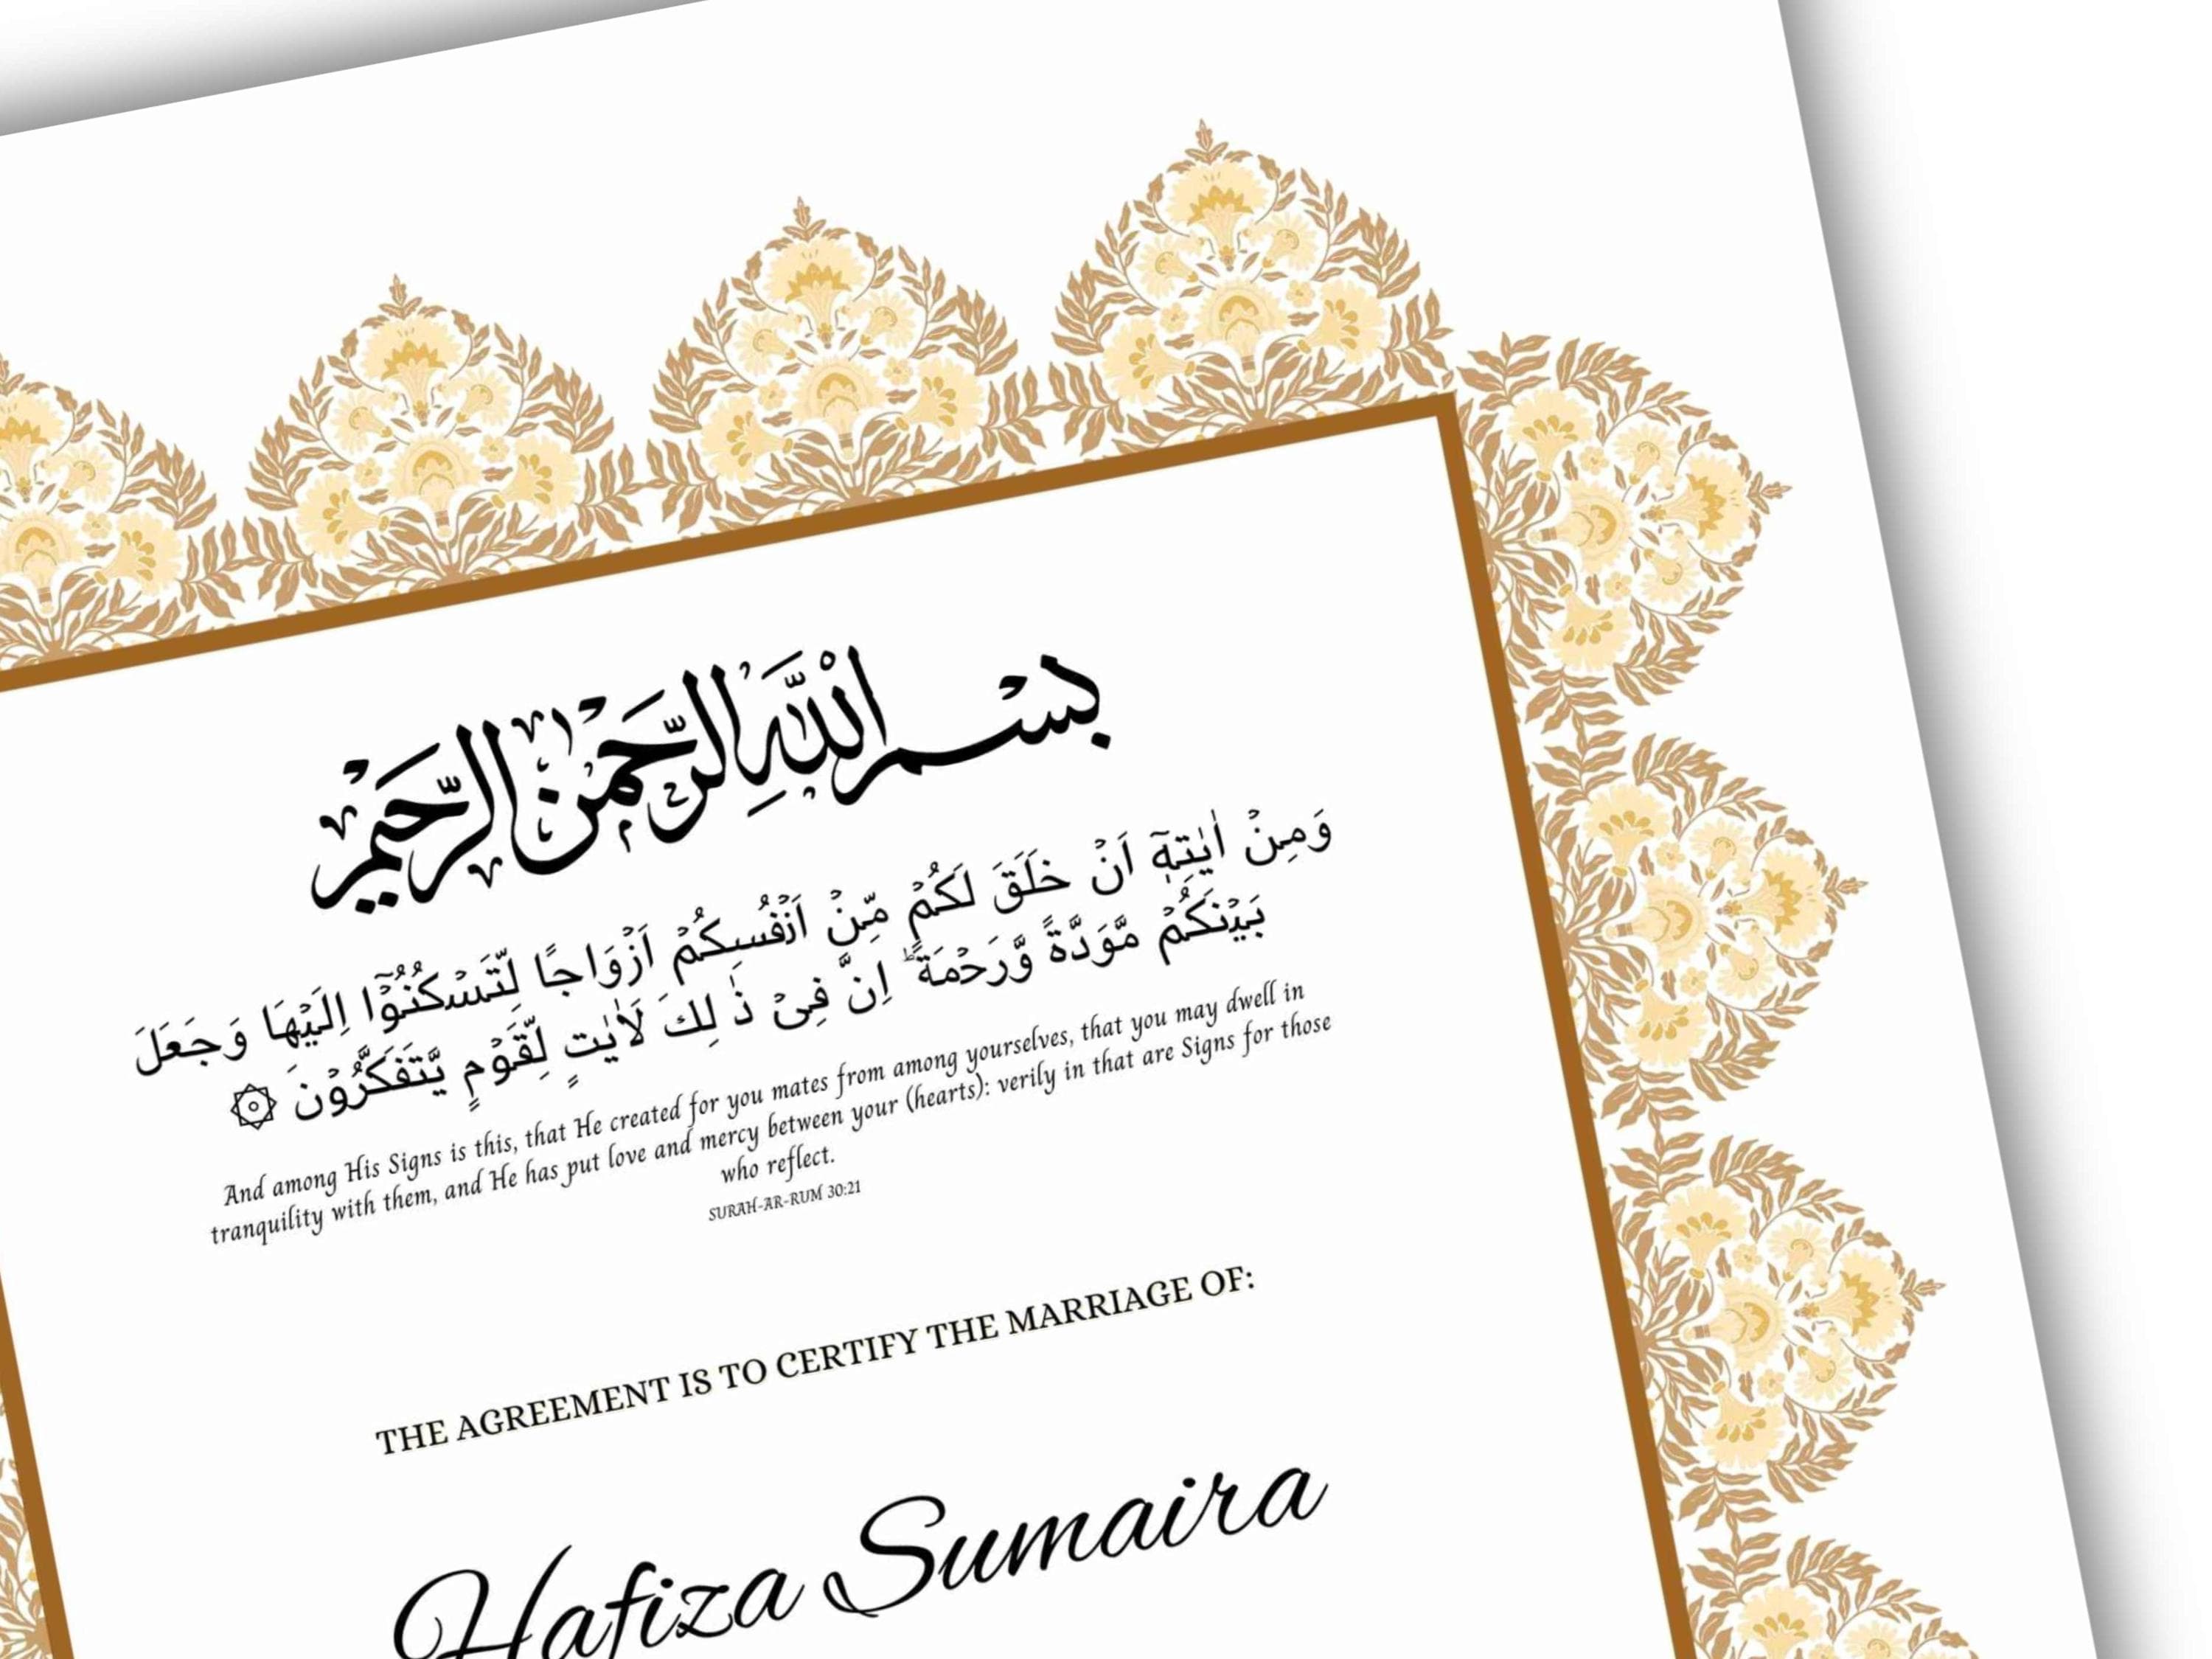 بِسْمِ اللَّهِ الرَّحْمَٰنِ الرَّحِيمِ
وَمِنۡ اٰيٰتِهٖۤ اَنۡ خَلَقَ لَكُمۡ مِّنۡ اَنۡفُسِكُمۡ اَزۡوَاجًا لِّتَسۡكُنُوۡۤا اِلَيۡهَا وَجَعَلَ
بَيۡنَكُمۡ مَّوَدَّةً وَّرَحۡمَةً ؕ اِنَّ فِىۡ ذٰ لِكَ لَاٰيٰتٍ لِّقَوۡمٍ يَّتَفَكَّرُوۡنَ ۞
And among His Signs is this, that He created for you mates from among yourselves, that you may dwell in
tranquility with them, and He has put love and mercy between your (hearts): verily in that are Signs for those
who reflect.
SURAH-AR-RUM 30:21
THE AGREEMENT IS TO CERTIFY THE MARRIAGE OF:
Hafiza Sumaira